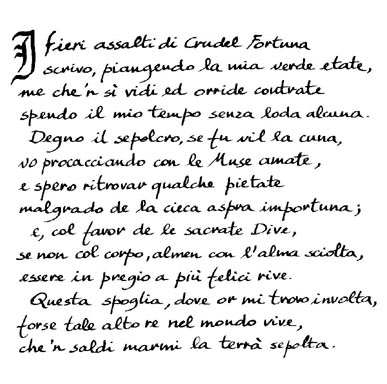 I fieri assalti di Crudel Fortuna
scrivo, piangendo la mia verde etate,
me che 'n sì vidi ed orride contrate
spendo il mio tempo senza loda alcuna.
Degno il sepolcro, se fu vil la cuna,
vo procacciando con le Muse amate,
e spero ritrovar qualche pietate
malgrado de la cieca aspra importuna;
e, col favor de le sacrate Dive,
se non col corpo, almen con l'alma sciolta,
essere in pregio a più felici rive.
Questa spoglia, dove or mi trovo involta,
forse tale alto re nel mondo vive,
che 'n saldi marmi la terrà sepolta.